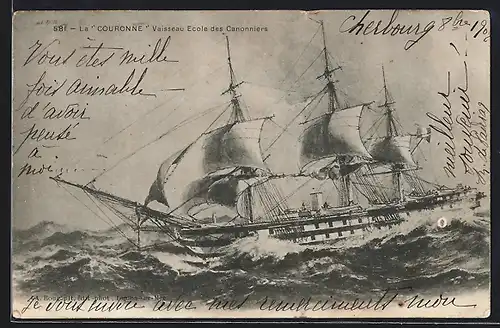 581 - La "COURONNE" Vaisseau Ecole des Canonniers
Cherbourg 8bre 190
Vous êtes mille
fois aimable
d'avoir
pensé
à
moi
meilleur
souvenir
Je vous envoie avec mes remerciements mon